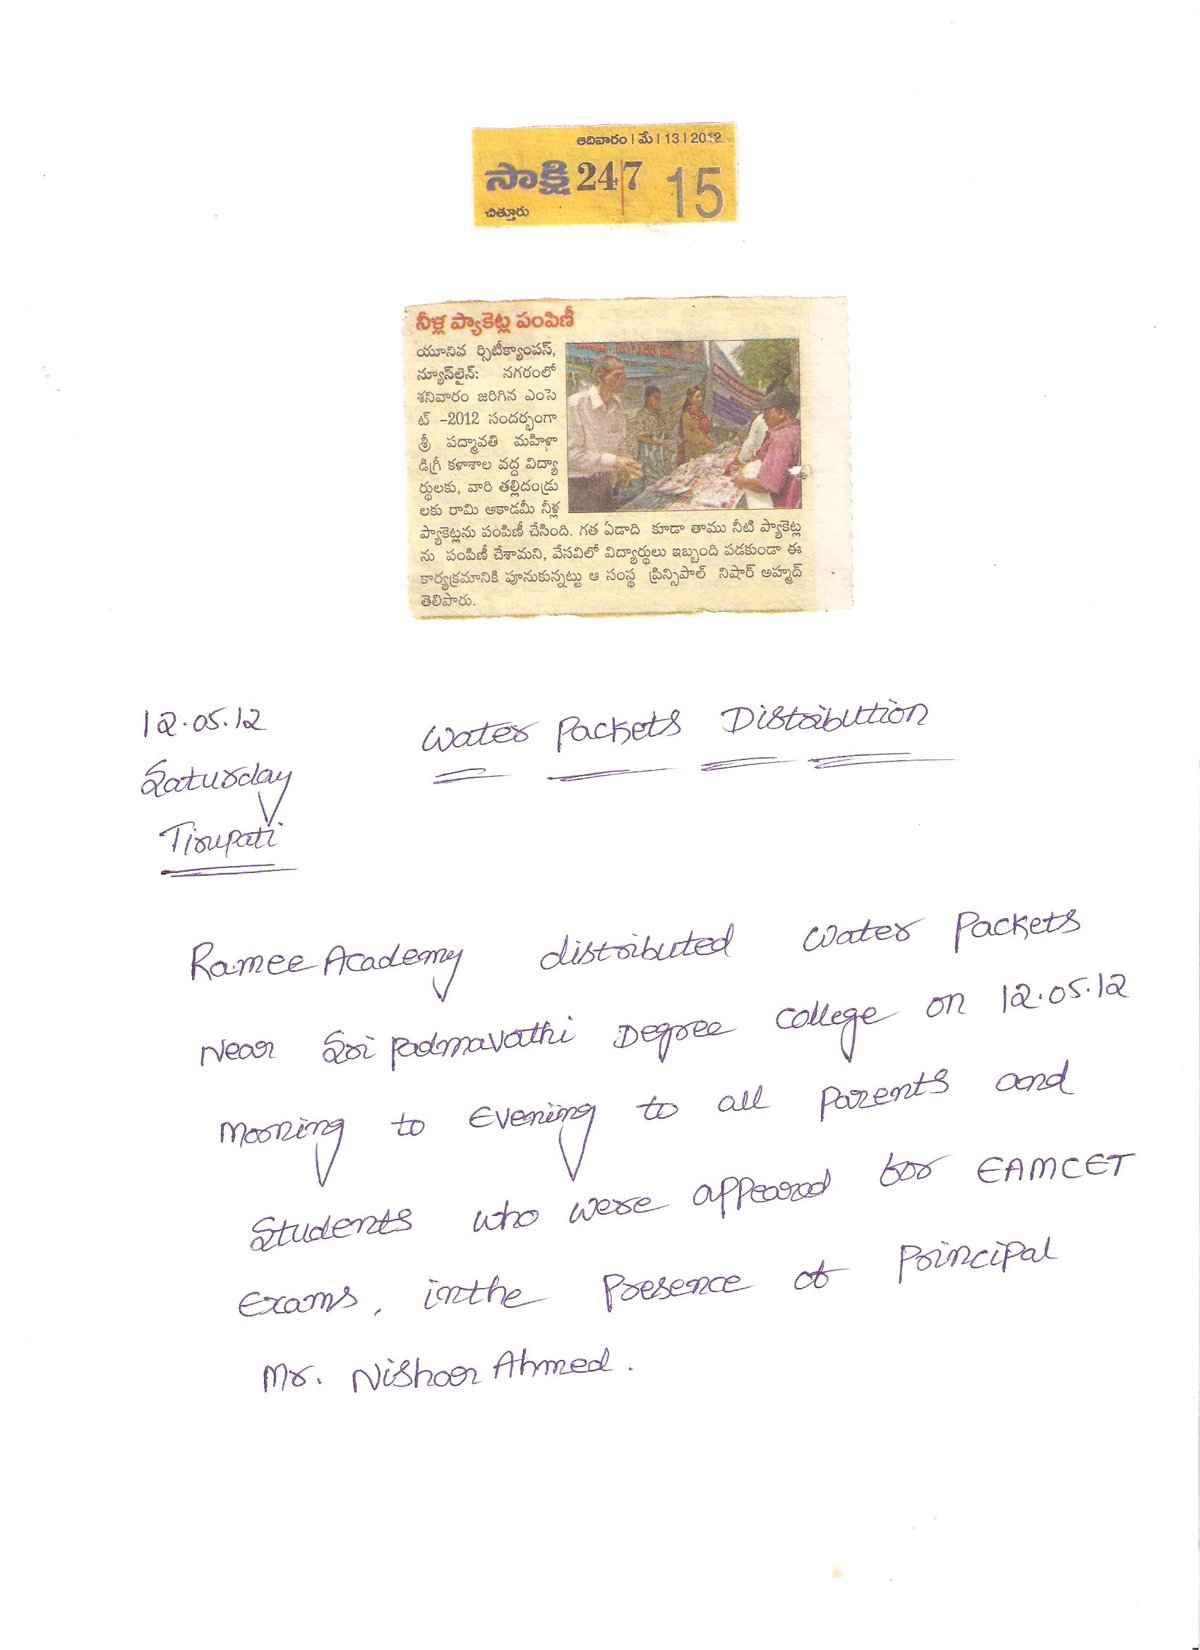 ఆదివారం | మే | 13 | 2012
సాక్షి 24/7 15
చిత్తూరు
నీళ్ల ప్యాకెట్ల పంపిణీ
యూనివ ర్సిటీక్యాంపస్,
న్యూస్‌లైన్: నగరంలో
శనివారం జరిగిన ఎంసె
ట్ -2012 సందర్భంగా
శ్రీ పద్మావతి మహిళా
డిగ్రీ కళాశాల వద్ద విద్యా
ర్థులకు, వారి తల్లిదండ్రు
లకు రామి అకాడమీ నీళ్ల
ప్యాకెట్లను పంపిణీ చేసింది. గత ఏడాది కూడా తాము నీటి ప్యాకెట్ల
ను పంపిణీ చేశామని, వేసవిలో విద్యార్థులు ఇబ్బంది పడకుండా ఈ
కార్యక్రమానికి పూనుకున్నట్టు ఆ సంస్థ ప్రిన్సిపాల్ నిషార్ అహ్మద్
తెలిపారు.
12.05.12
Saturday
Tirupati
Water Packets Distribution
Ramee Academy distributed Water Packets
Near Sri Padmavathi Degree College on 12.05.12
Morning to Evening to all Parents and
Students who were appeared for EAMCET
Exams, in the Presence of Principal
Mr. Nishar Ahmed.